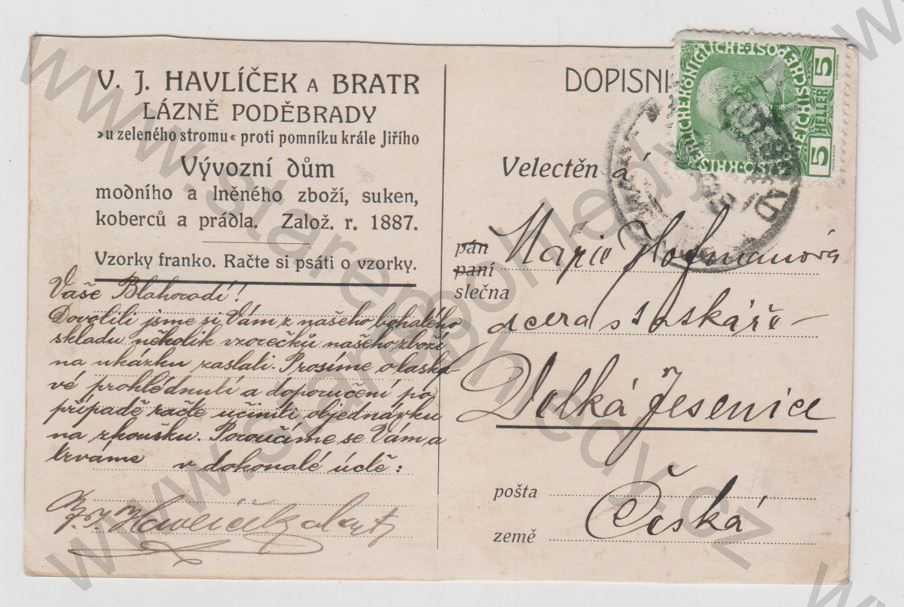 V. J. HAVLÍČEK A BRATR
LÁZNĚ PODĚBRADY
»u zeleného stromu« proti pomníku krále Jiřího
Vývozní dům
modního a lněného zboží, suken,
koberců a prádla. Založ. r. 1887.
Vzorky franko. Račte si psáti o vzorky.
Vaše Blahorodí!
Dovolili jsme si Vám z našeho bohatého
skladu několik vzorečků našeho zboží
na ukázku zaslati. Prosíme o laska
vé prohlédnutí a doporučení po
případě račte učiniti objednávku
na zkoušku. Poroučíme se Vám a
trváme v dokonalé úctě:
V. J. Havlíček a bratr
DOPISNI
5 5
HELLER
Velectěn á
pán
paní
slečna
Marie Hofmanová
dcera
Velká Jesenice
pošta
Česká
země
www.starepohledy.cz